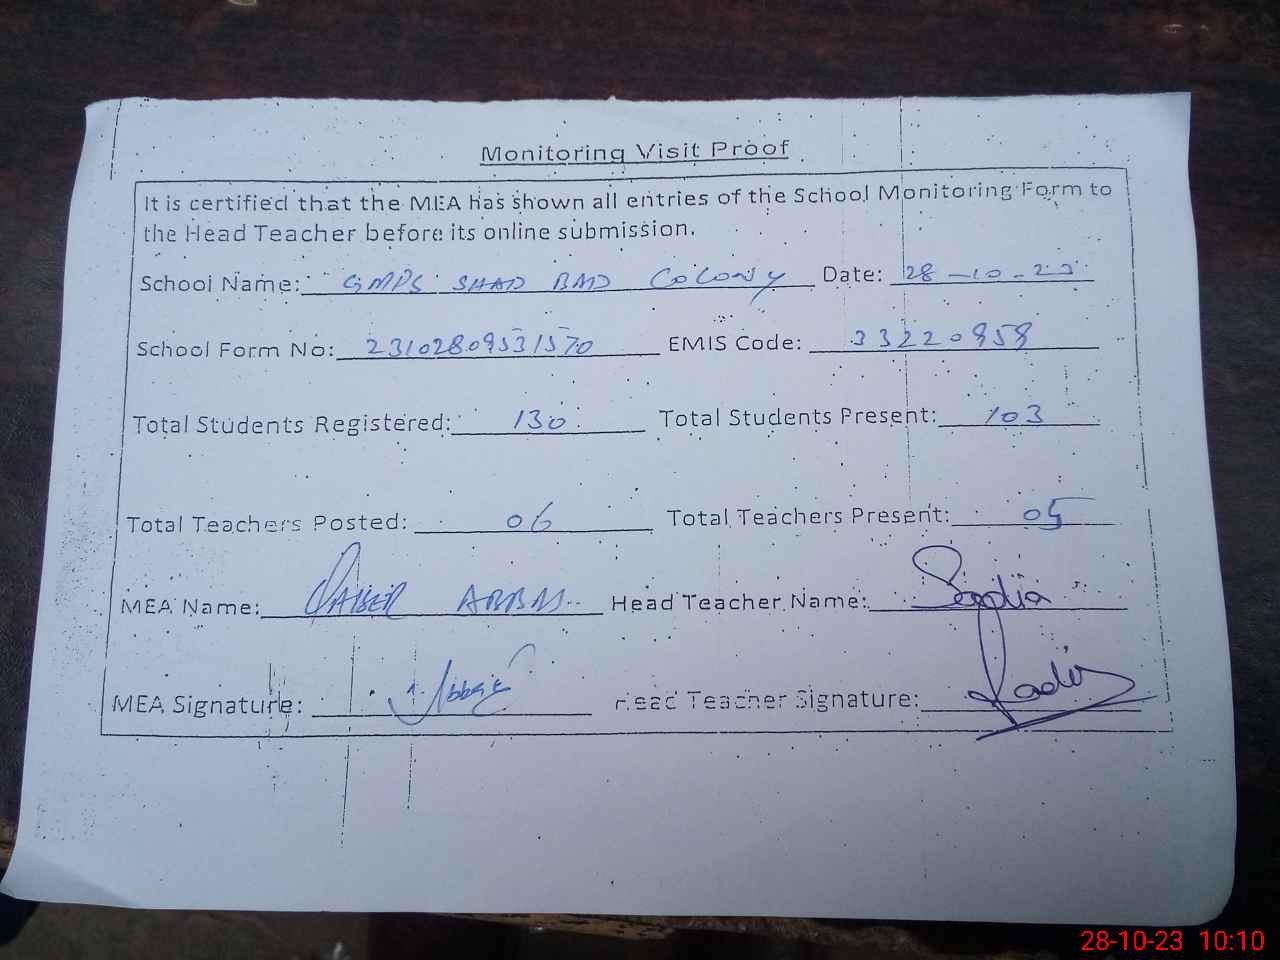 Monitoring Visit Proof
It is certified that the MEA has shown all entries of the School Monitoring Form to
the Head Teacher before its online submission.
School Name: GMPS SHAD BAD COLONY Date: 28-10-23
School Form No: 23102809531570 EMIS Code: 33220958
Total Students Registered: 130 Total Students Present: 103
Total Teachers Posted: 06 Total Teachers Present: 05
MEA Name: QAISER ABBAS Head Teacher Name:
MEA Signature: Head Teacher Signature:
28-10-23 10:10